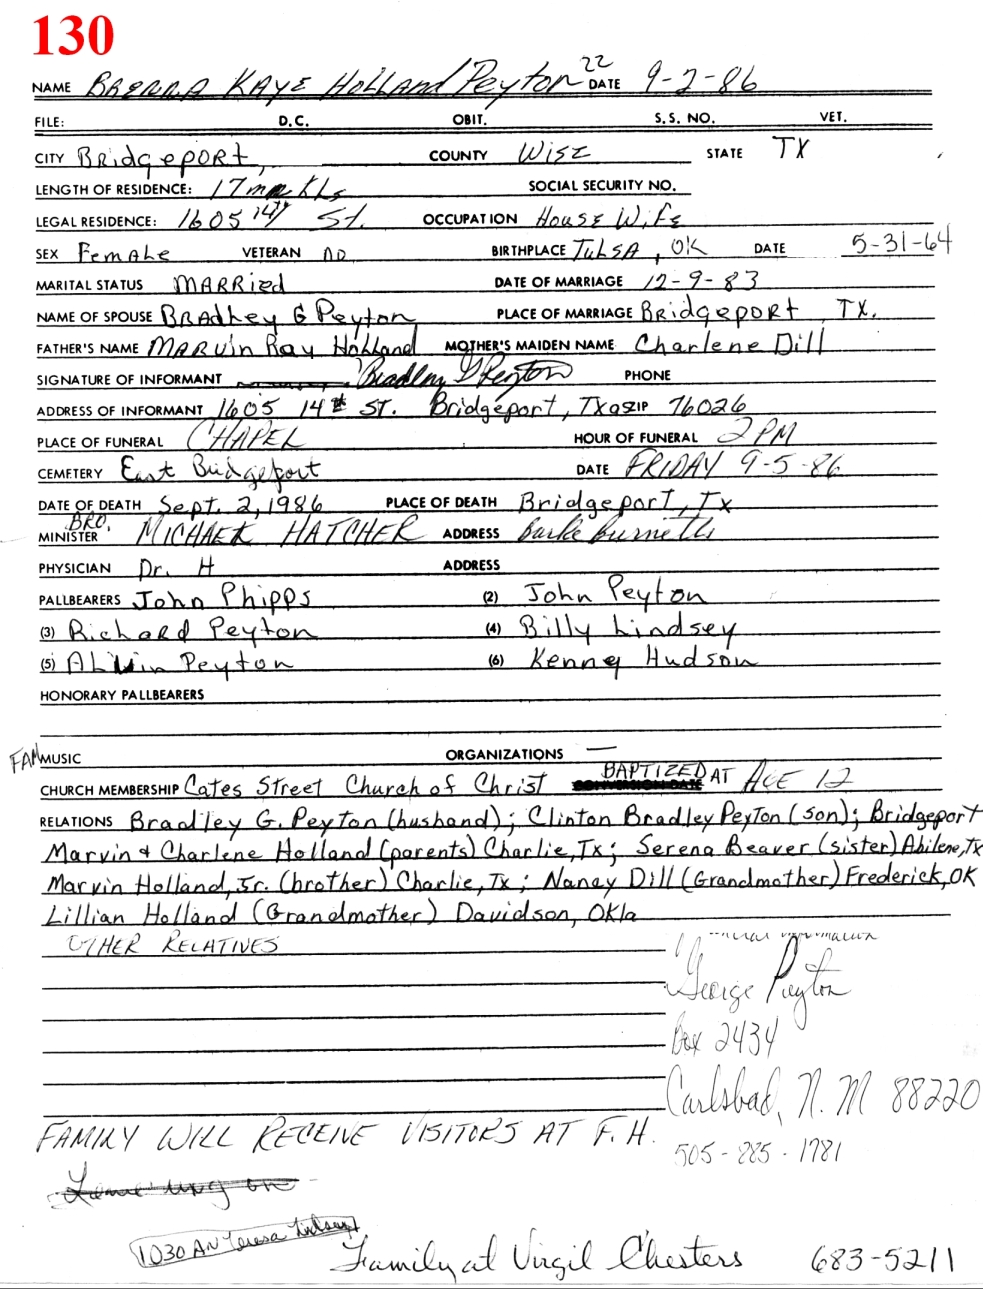 130
NAME BRENDA KAYE HOLLAND Peyton 22 DATE 9-2-86
FILE: D.C. OBIT. S.S. NO. VET.
CITY Bridgeport, COUNTY WISE STATE TX
LENGTH OF RESIDENCE: 17 SOCIAL SECURITY NO.
LEGAL RESIDENCE: 1605 14th St. OCCUPATION House Wife
SEX Female VETERAN no BIRTHPLACE Tulsa, OK DATE 5-31-64
MARITAL STATUS MARRied DATE OF MARRIAGE 12-9-83
NAME OF SPOUSE BRADley G Peyton PLACE OF MARRIAGE Bridgeport TX.
FATHER'S NAME MARvin Ray Holland MOTHER'S MAIDEN NAME Charlene Dill
SIGNATURE OF INFORMANT Bradley G Peyton PHONE
ADDRESS OF INFORMANT 1605 14th ST. Bridgeport, Txas ZIP 76026
PLACE OF FUNERAL CHAPEL HOUR OF FUNERAL 2 PM
CEMETERY East Bridgeport DATE FRIDAY 9-5-86
DATE OF DEATH Sept. 2, 1986 PLACE OF DEATH Bridgeport, Tx
BRO.
MINISTER MICHAEL HATCHER ADDRESS Burke Burnette
PHYSICIAN Dr. H ADDRESS
PALLBEARERS John Phipps (2) John Peyton
(3) Richard Peyton (4) Billy Lindsey
(5) Alvin Peyton (6) Kenney Hudson
HONORARY PALLBEARERS
FAM MUSIC ORGANIZATIONS —
CHURCH MEMBERSHIP Cates Street Church of Christ BAPTIZED AT AGE 12
RELATIONS Bradley G. Peyton (husband); Clinton Bradley Peyton (son); Bridgeport
Marvin & Charlene Holland (parents) Charlie, Tx; Serena Beaver (sister) Abilene, Tx
Marvin Holland, Jr. (brother) Charlie, Tx; Nancy Dill (Grandmother) Frederick, OK
Lillian Holland (Grandmother) Davidson, Okla
OTHER RELATIVES
George Peyton
Box 2434
Carlsbad, N.M 88220
FAMILY WILL RECEIVE VISITORS AT F.H.
505-885-1781
1030 AN Teresa Lindsey
Family at Virgil Chesters 683-5211